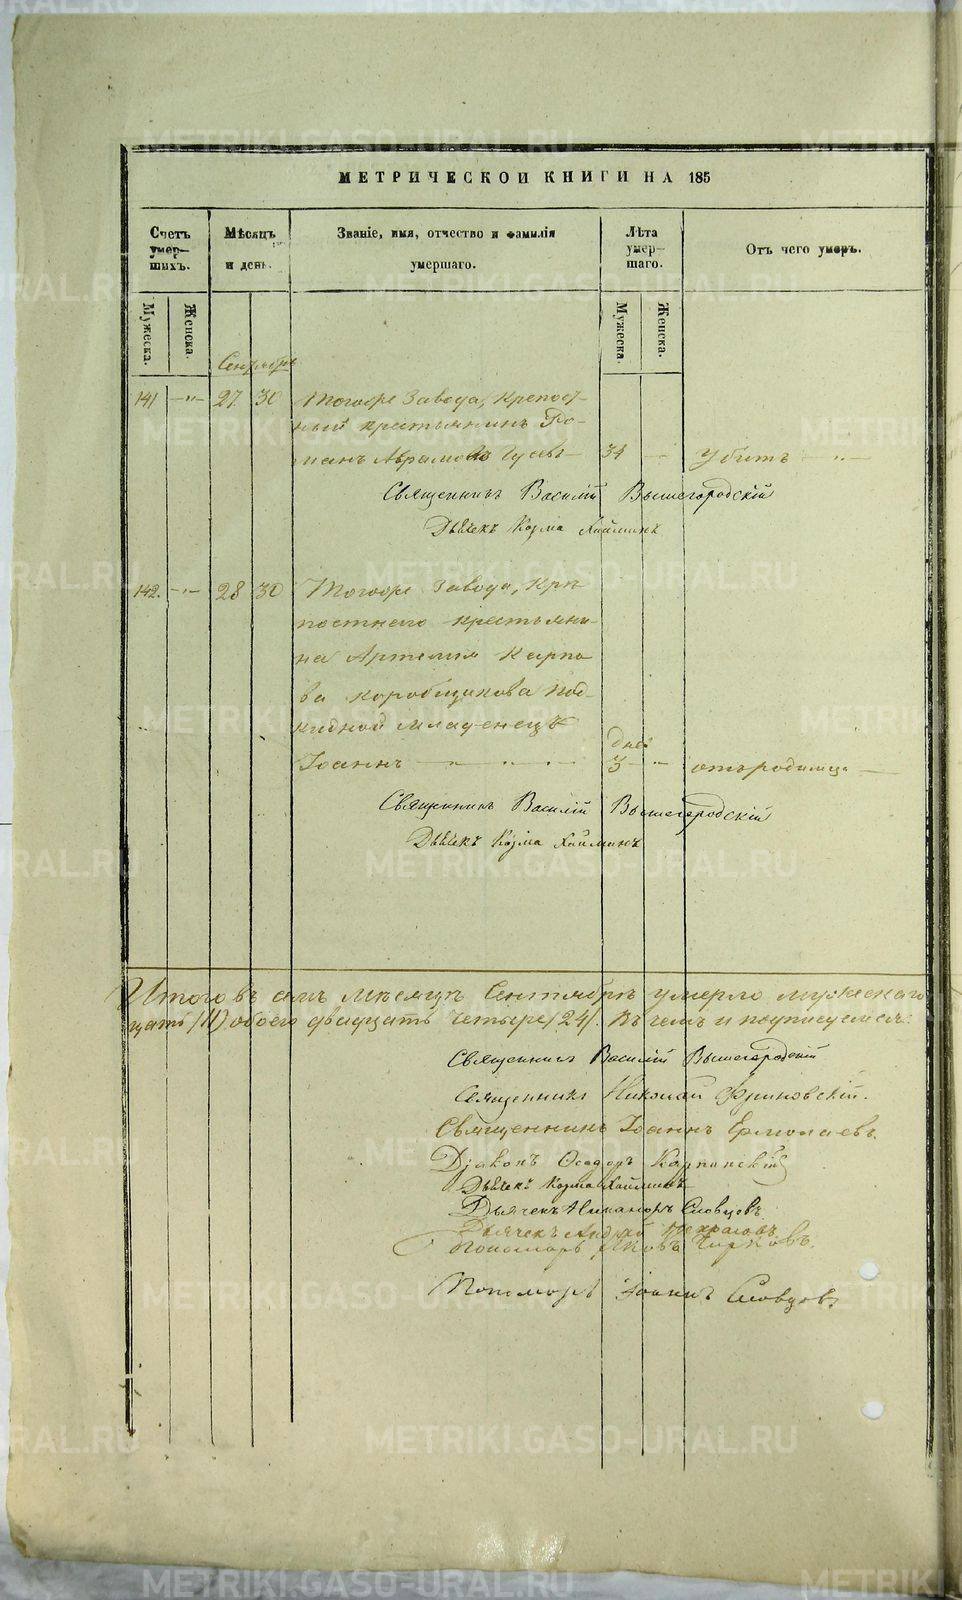 МЕТРИЧЕСКОЙ КНИГИ НА 185
Счетъ умер-шихъ.
Мѣсяцъ и день.
Званіе, имя, отчество и фамилія умершаго.
Лѣта умер-шаго.
Отъ чего умеръ.
Мужеска.
Женска.
Мужеска.
Женска.
Сентябрь
141 —„— 27 30 Тогоже Завода, крепост-
ный крестьянинъ Ро-
манъ Аврамовъ 34 — убитъ —„—
Священникъ Василій Вышегородскій
Дьячекъ Козма Хайминъ
142. —„— 28 30 Тогоже Завода, Крѣ-
постнаго крестьяни-
на Артемія Карпо-
ва Коробщикова под-
кидной младенецъ
дней
Іоаннъ —„—„— 3 —„— отъ родимца —
Священникъ Василій Вышегородскій
Дьячекъ Козма Хайминъ
Итого въ семъ мѣсяцѣ Сентябрѣ умерло мужескаго
цать /11/ обоего двадцать четыре /24/. Въ чемъ и подписуемся:
Священникъ Василій Вышегородскій
Священникъ Николай Фриновскій.
Священникъ Іоаннъ Ермолаевъ.
Діаконъ Ѳеодоръ Карпинскій
Дьячекъ Козма Хайминъ
Дьячекъ Никаноръ Словцовъ
Дьячекъ Андрей Некрасовъ
Пономарь Яковъ Чирковъ.
Пономарь Іоаннъ Словцовъ
METRIKI.GASO-URAL.RU